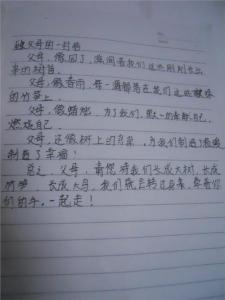 父母的一封信
父母,像园丁,滋润着我们这些刚刚长出
来的树苗。
父母,像春雨,每一滴都落在我们这些
的竹笋上。
父母,像蜡烛,为了我们,默默的奉献自己,
燃烧自己。
父母,还像树上的,为我们制造了
制造了幸福!
总之,父母,请您待我们长成大树,长成
竹笋,长成大鸟,我们就会转过身来,牵着你
们的手,一起走!